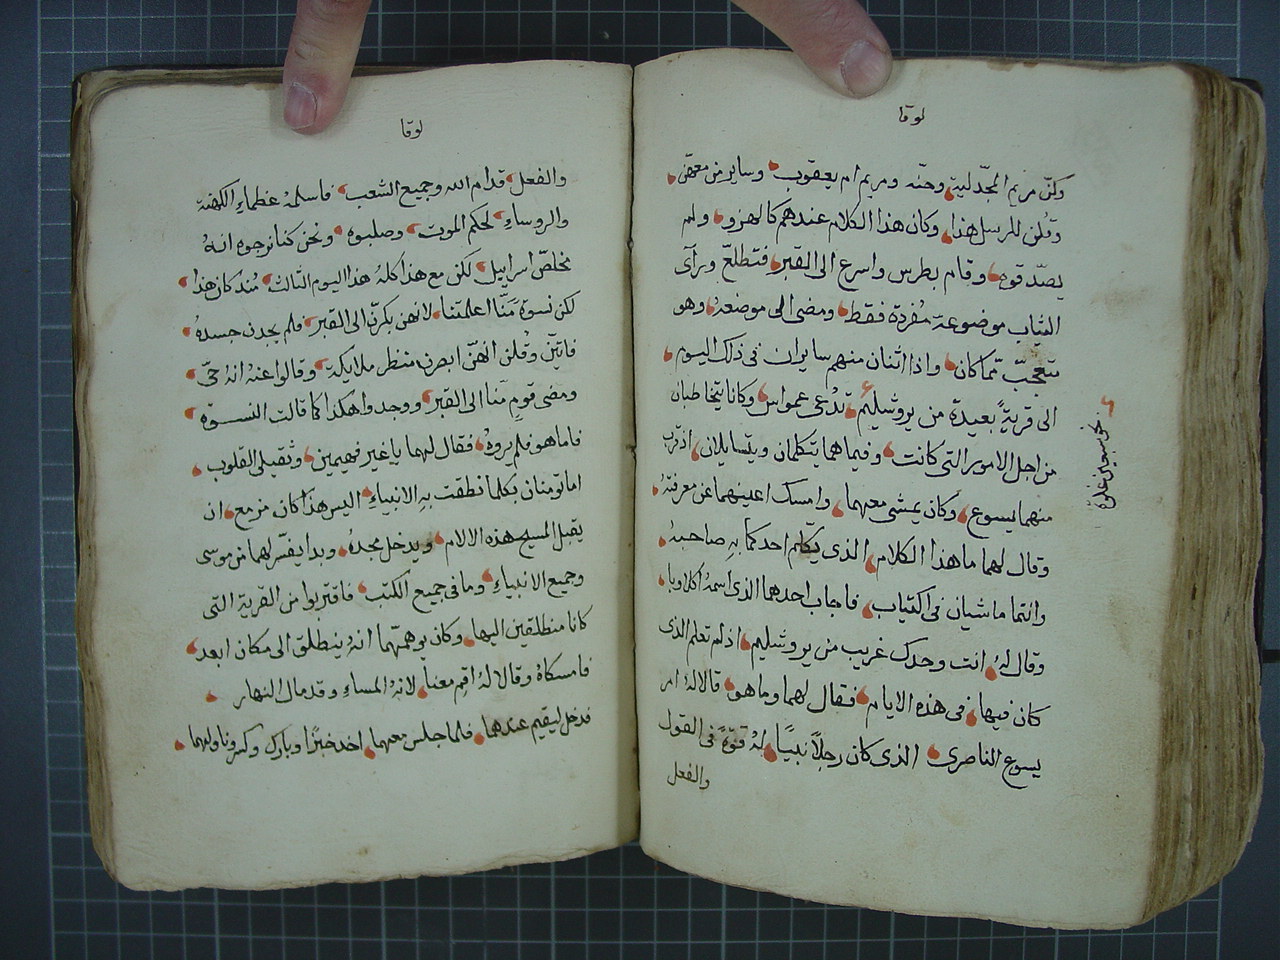 لوقا
وكنّ مريم المجدليّة وحنّه ومريم ام يعقوب وساير من معهنّ
وقلن للرسل هذا وكان هذا الكلام عندهم كالهزو ولم
يصدّقوه وقام بطرس واسرع الى القبر فتطلّع وراى
الثياب موضوعة مفردة فقط ومضى الى موضعهُ وهو
متعجبّ ممّا كان واذا اثنان منهم سايران فى ذلك اليوم
الى قريةٍ بعيدة من يروشليم تدعى عمواس وكانا يتخاطبان
من اجل الامور التى كانت وفيما هما يتكلمان ويتسايلان اذ قرب
منهما يسوع وكان يمشى معهما وامسك اعينهما عن معرفتهُ
وقال لهما ما هذا الكلام الذى يكلم احدكما بهِ صاحبهُ
وانتما ماشيان فى اكتياب فاجاب احدهما الذى اسمهُ اكلاوبا
وقال لهُ انت وحدك غريب من يروشليم اذ لم تعلم الذى
كان فيها فى هذه الايام فقال لهما وما هو قالا لهُ امر
يسوع الناصرى الذى كان رجلاً نبيّاً لهُ قوّةً فى القول
والفعل
نحو ستين غلوة
لوقا
والفعل قدام الله وجميع الشعب فاسلمهُ عظماء الكهنة
والروساءِ لحكم الموت وصلبوه ونحن كنا نرجوه انهُ
مخلصّ اسراييل لكن مع هذا كلهُ هذا اليوم الثالث مُند كان هذا
لكن نسوة مَنّا اعلمتنا لانهن بكرّن الى القبر فلم يجدن جسدهُ
فاتين وقلن انهنّ ابصرن منظر ملايكة وقالوا عنهُ انهُ حىّ
ومضى قوم منّا الى القبر ووجدوا هكذا كما قالت النسوة
فاما هو فلم يروهُ فقال لهما يا غير فهيمين وثقيلى القلوب
اما تومنان بكلما نطقت بهِ الانبياءِ اليس هذا كان مزمع ان
يقبل المسيح هذه الالام ويدخل مجدهُ وبدا يفسّر لهما من موسى
وجميع الانبياءِ وما فى جميع الكتب فاقتربوا من القرية التى
كانا منطلقين اليها وكان يوهمّهما انهُ ينطلق الى مكان ابعد
فامسكاهُ وقالا لهُ اقم معنا لانهُ المساءِ وقد مال النهار
فدخل ليقيم عندهما فلما جلس معهما اخذ خبزًا وبارك وكسر وناولهما